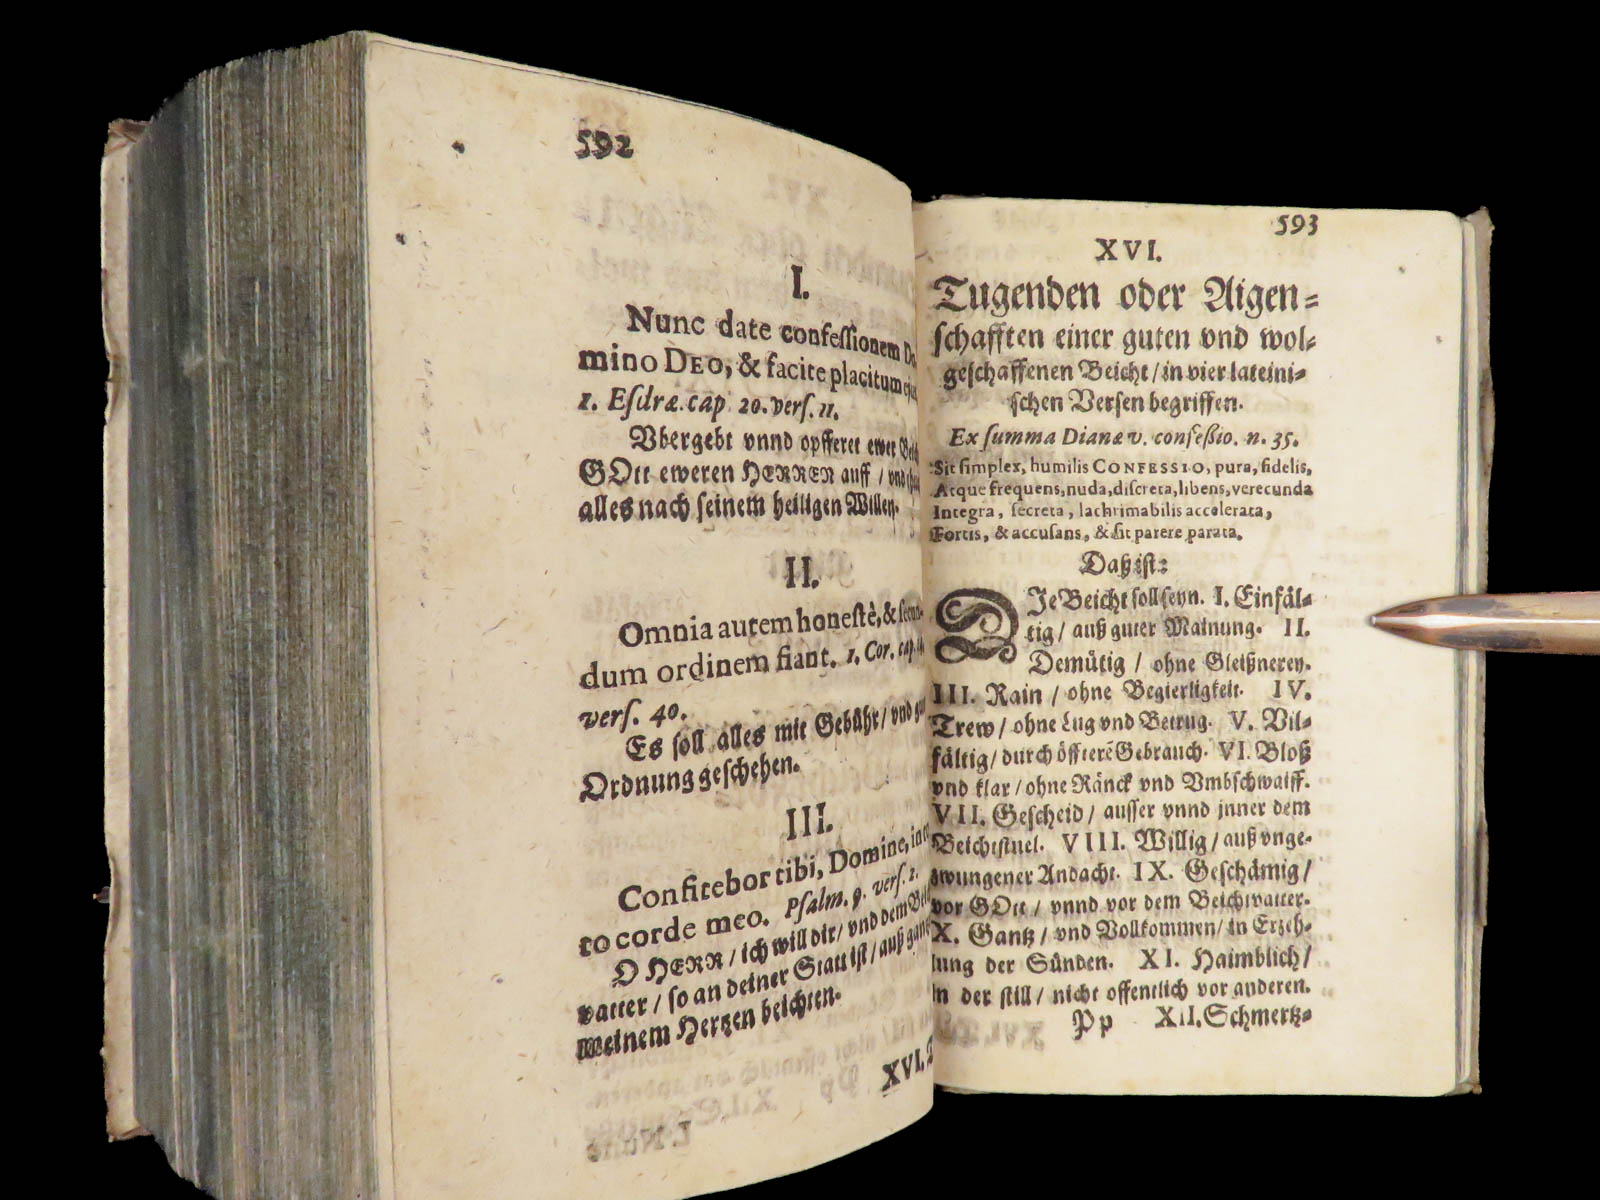 592
I.
Nunc date confessionem
mino DEO, & facite placitum
1. Esdræ. cap. 20. vers. 11.
Vbergebt vnnd opfferet ewer
GOtt eweren HERREN auff /
alles nach seinem heiligen Willen.
II.
Omnia autem honestè, &
dum ordinem fiant. 1. Cor. cap.
vers. 40.
Es soll alles mit Gebühr / vnd
Ordnung geschehen.
III.
Confitebor tibi, Domine,
to corde meo. Psalm. 9. vers. 1.
O HERR / ich will dir / vnd dem
vatter / so an deiner Statt ist / auß
meinem Hertzen beichten.
XVI.
593
XVI.
Tugenden oder Aigen=
schafften einer guten vnd wol=
geschaffenen Beicht / in vier lateini=
schen Versen begriffen.
Ex summa Dianæ v. confeßio. n. 35.
Sit simplex, humilis CONFESSIO, pura, fidelis,
Atque frequens, nuda, discreta, libens, verecunda
Integra, secreta, lachrimabilis accelerata,
Fortis, & accusans, & sit parere parata.
Daß ist:
DJe Beicht soll seyn. I. Einfäl=
tig / auß guter Mainung. II.
Demütig / ohne Gleißnerey.
III. Rain / ohne Begierligkeit. IV.
Trew / ohne Lug vnd Betrug. V. Vil=
fältig / durch öffterē Gebrauch. VI. Bloß
vnd klar / ohne Ränck vnd Vmbschwaiff.
VII. Gescheid / ausser vnnd jnner dem
Beichtstuel. VIII. Willig / auß vnge=
zwungener Andacht. IX. Geschämig /
vor GOtt / vnnd vor dem Beichtvatter.
X. Gantz / vnd Vollkommen / in Erzeh=
lung der Sünden. XI. Haimblich /
in der still / nicht offentlich vor anderen.
Pp XII. Schmertz=